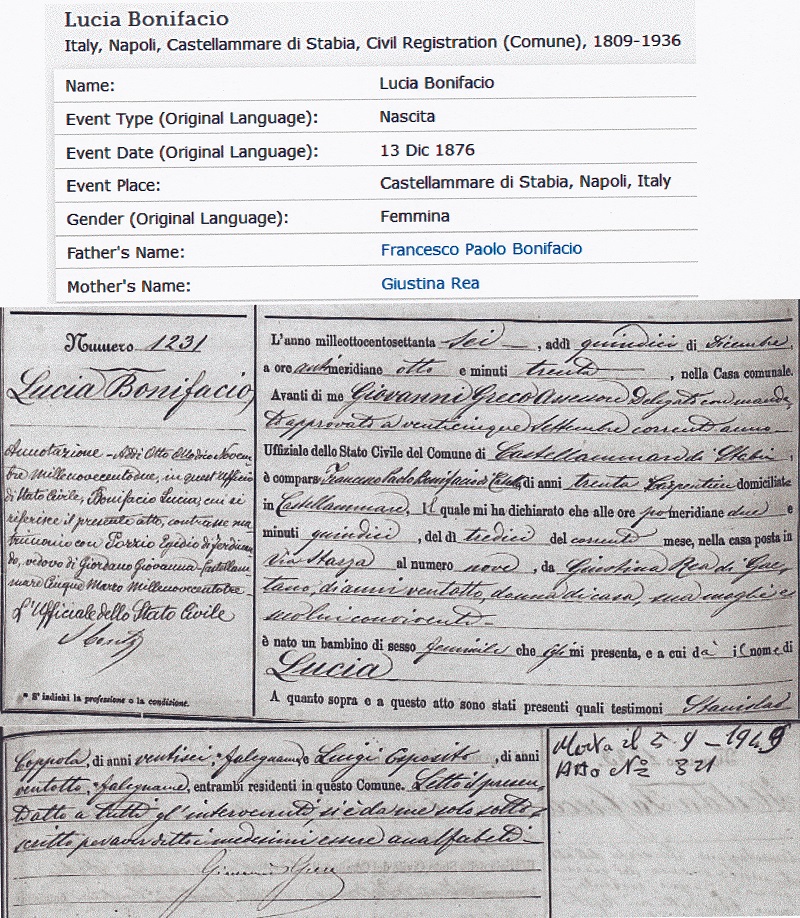 Lucia Bonifacio
Italy, Napoli, Castellammare di Stabia, Civil Registration (Comune), 1809-1936
Name: Lucia Bonifacio
Event Type (Original Language): Nascita
Event Date (Original Language): 13 Dic 1876
Event Place: Castellammare di Stabia, Napoli, Italy
Gender (Original Language): Femmina
Father's Name: Francesco Paolo Bonifacio
Mother's Name: Giustina Rea
Numero 1231
Lucia Bonifacio
Annotazione - Addì Otto Novem
bre Millenovecentodue, in quest'Uffizio
di Stato Civile, Bonifacio Lucia, cui si
riferisce il presente atto, contrasse ma
trimonio con Pozzio Egidio di Ferdinan
do, vedovo di Giordano Giovanna - Castellam
mare Cinque Marzo Millenovecentotre
L'Ufficiale dello Stato Civile
* S'indichi la professione o la condizione.
L'anno milleottocentosettanta sei, addì quindici di Dicembre,
a ore antimeridiane otto e minuti trenta, nella Casa comunale.
Avanti di me Giovanni Greco Assessore Delegato con manda
to approvato a venticinque Settembre corrente anno
Uffiziale dello Stato Civile del Comune di Castellammare di Stabia,
è comparso Francesco Paolo Bonifacio di, di anni trenta Carpentiere domiciliato
in Castellammare, il quale mi ha dichiarato che alle ore pomeridiane due e
minuti quindici, del dì tredici del corrente mese, nella casa posta in
Via al numero nove, da Giustina Rea di Gae
tano, di anni ventotto, donna di casa, sua moglie e
seco lui convivente
è nato un bambino di sesso femminile che egli mi presenta, e a cui dà il nome di
Lucia
A quanto sopra e a questo atto sono stati presenti quali testimoni Stanislao
Coppola, di anni ventisei, falegname e Luigi Esposito, di anni
ventotto, falegname, entrambi residenti in questo Comune. Letto il presen
te atto a tutti gl'intervenuti, si è da me solo sotto
scritto per aver detto i medesimi essere analfabeti
Giovanni Greco
Morta il 5-4-1949
Atto N° 321